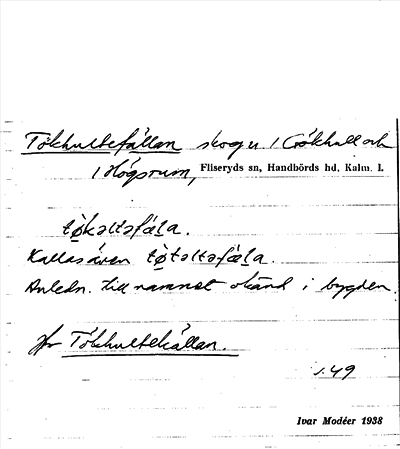 Tökhultefällan skog u. 1 Gökhult och
1 Högsrum, Fliseryds sn, Handbörds hd, Kalm. l.
tø̀kəltəfæ̀la.
Kallas även tø̀təltəfæ̀la.
Anledn. till namnet okänd i bygden.
Jfr Tökhultekällan.
s. 49
Ivar Modéer 1938